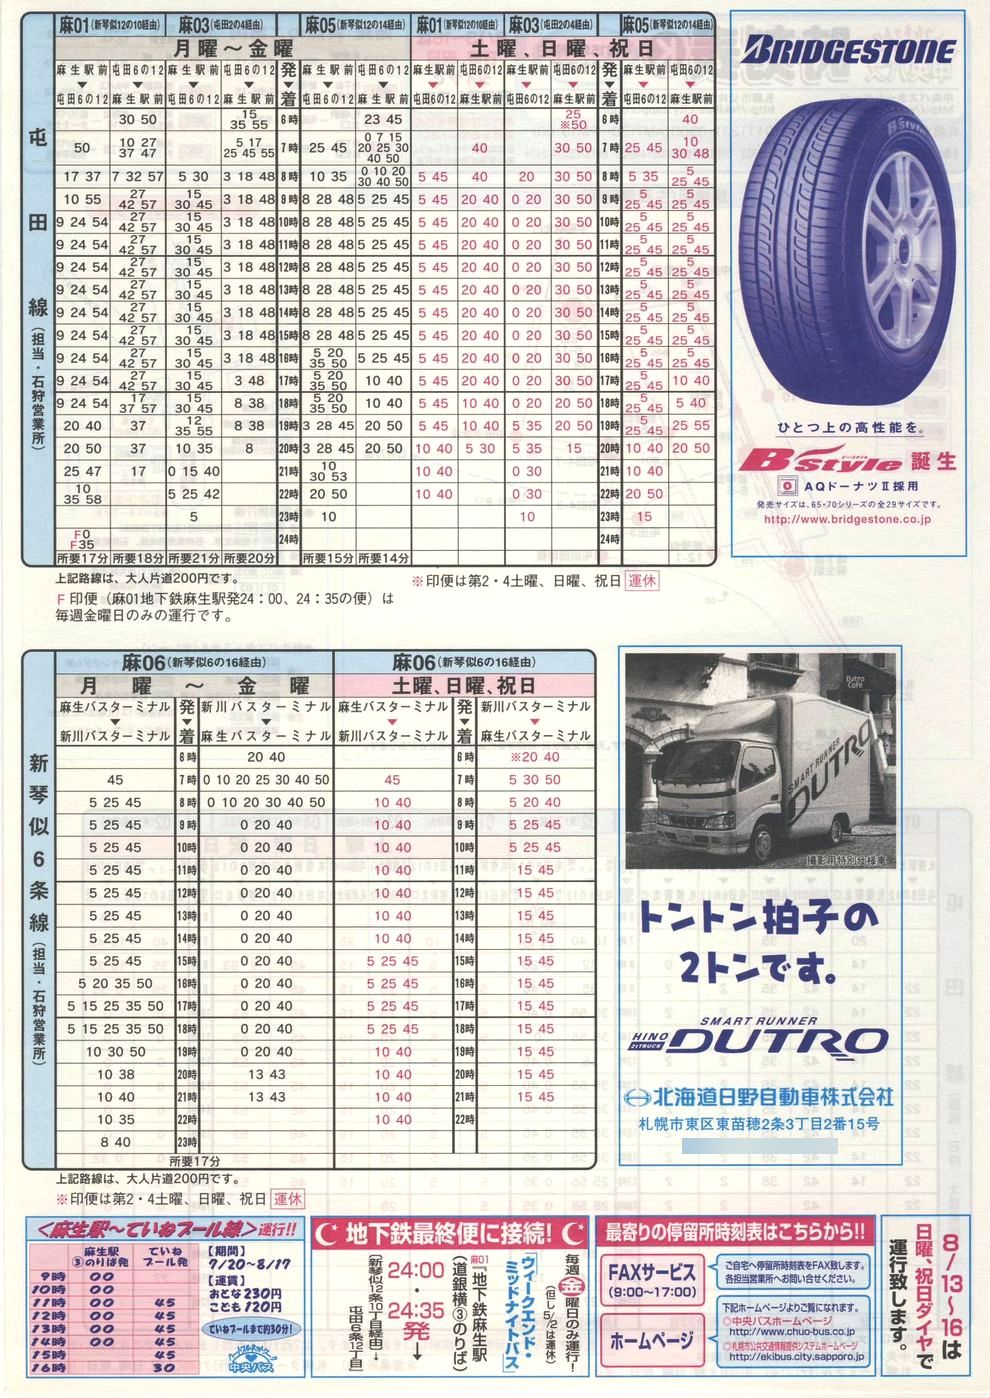 麻01(新琴似12の10経由) 麻03(屯田2の4経由) 麻05(新琴似12の14経由) 麻01(新琴似12の10経由) 麻03(屯田2の4経由) 麻05(新琴似12の14経由)
月曜～金曜 土曜、日曜、祝日
麻生駅前 屯田6の12 麻生駅前 屯田6の12 発 麻生駅前 屯田6の12 麻生駅前 屯田6の12 麻生駅前 屯田6の12 発 麻生駅前 屯田6の12
▼ ▼ ▼ ▼ ▼ ▼ ▼ ▼ ▼ ▼ ▼ ▼ ▼ ▼
屯田6の12 麻生駅前 屯田6の12 麻生駅前 着 屯田6の12 麻生駅前 屯田6の12 麻生駅前 屯田6の12 麻生駅前 着 屯田6の12 麻生駅前
屯田線(担当・石狩営業所)
30 50 15 35 55 6時 23 45 25 ※50 6時 40
50 10 27 37 47 5 17 25 45 55 7時 25 45 0 7 15 20 25 30 40 50 40 30 50 7時 25 45 10 30 48
17 37 7 32 57 5 30 3 18 48 8時 10 35 0 10 20 30 40 50 5 45 40 20 30 50 8時 5 35 5 25 45
10 55 27 42 57 15 30 45 3 18 48 9時 8 28 48 5 25 45 5 45 20 40 0 20 30 50 9時 5 25 45 5 25 45
9 24 54 27 42 57 15 30 45 3 18 48 10時 8 28 48 5 25 45 5 45 20 40 0 20 30 50 10時 5 25 45 5 25 45
9 24 54 27 42 57 15 30 45 3 18 48 11時 8 28 48 5 25 45 5 45 20 40 0 20 30 50 11時 5 25 45 5 25 45
9 24 54 27 42 57 15 30 45 3 18 48 12時 8 28 48 5 25 45 5 45 20 40 0 20 30 50 12時 5 25 45 5 25 45
9 24 54 27 42 57 15 30 45 3 18 48 13時 8 28 48 5 25 45 5 45 20 40 0 20 30 50 13時 5 25 45 5 25 45
9 24 54 27 42 57 15 30 45 3 18 48 14時 8 28 48 5 25 45 5 45 20 40 0 20 30 50 14時 5 25 45 5 25 45
9 24 54 27 42 57 15 30 45 3 18 48 15時 8 28 48 5 25 45 5 45 20 40 0 20 30 50 15時 5 25 45 5 25 45
9 24 54 27 42 57 15 30 45 3 18 48 16時 5 20 35 50 5 25 45 5 45 20 40 0 20 30 50 16時 5 25 45 5 25 45
9 24 54 27 42 57 15 30 45 3 48 17時 5 20 35 50 10 40 5 45 20 40 0 20 30 50 17時 5 25 45 10 40
9 24 54 17 37 57 15 30 45 8 38 18時 5 20 35 50 10 40 5 45 10 40 0 20 20 50 18時 5 25 45 5 40
20 40 37 12 35 55 8 38 19時 3 28 45 20 50 5 45 10 40 5 35 20 50 19時 5 25 45 25 55
20 50 37 10 35 8 20時 3 28 45 20 50 10 40 5 30 5 35 15 20時 10 40 20 50
25 47 17 0 15 40 21時 10 30 53 10 40 0 30 21時 10 40
10 35 58 5 25 42 22時 20 50 10 40 0 30 22時 20 50
5 23時 10 10 23時 15
F0 F35 24時 24時
所要17分 所要18分 所要21分 所要20分 所要15分 所要14分
上記路線は、大人片道200円です。
※印便は第2・4土曜、日曜、祝日 運休
F 印便（麻01地下鉄麻生駅発24：00、24：35の便）は
毎週金曜日のみの運行です。
BRIDGESTONE
ひとつ上の高性能を。
B-Style 誕生
AQドーナツⅡ採用
発売サイズは、65・70シリーズの全29サイズです。
http://www.bridgestone.co.jp
麻06(新琴似6の16経由) 麻06(新琴似6の16経由)
月曜～金曜 土曜、日曜、祝日
麻生バスターミナル 発 新川バスターミナル 麻生バスターミナル 発 新川バスターミナル
▼ ▼ ▼ ▼ ▼ ▼
新川バスターミナル 着 麻生バスターミナル 新川バスターミナル 着 麻生バスターミナル
新琴似6条線(担当・石狩営業所)
6時 20 40 6時 ※20 40
45 7時 0 10 20 25 30 40 50 45 7時 5 30 50
5 25 45 8時 0 10 20 30 40 50 10 40 8時 5 20 40
5 25 45 9時 0 20 40 10 40 9時 5 25 45
5 25 45 10時 0 20 40 10 40 10時 5 25 45
5 25 45 11時 0 20 40 10 40 11時 15 45
5 25 45 12時 0 20 40 10 40 12時 15 45
5 25 45 13時 0 20 40 10 40 13時 15 45
5 25 45 14時 0 20 40 10 40 14時 15 45
5 25 45 15時 0 20 40 5 25 45 15時 15 45
5 20 35 50 16時 0 20 40 5 25 45 16時 15 45
5 15 25 35 50 17時 0 20 40 5 25 45 17時 15 45
5 15 25 35 50 18時 0 20 40 5 25 45 18時 15 45
10 30 50 19時 0 20 40 10 40 19時 15 45
10 38 20時 13 43 10 40 20時 15 45
10 40 21時 13 43 10 40 21時 15 45
10 35 22時 10 40 22時
8 40 23時
所要17分
上記路線は、大人片道200円です。
※印便は第2・4土曜、日曜、祝日 運休
Dutro Cafe
SMART RUNNER
DUTRO
撮影用特別仕様車
トントン拍子の
2トンです。
SMART RUNNER
HINO 2tTRUCK DUTRO
北海道日野自動車株式会社
札幌市東区東苗穂2条3丁目2番15号
<麻生駅～ていねプール線>運行!!
麻生駅③のりば発 ていねプール発
9時 00
10時 00
11時 00 45
12時 00 45
13時 00 45
14時 00 45
15時 45
16時 30
【期間】
7/20～8/17
【運賃】
おとな230円
こども120円
ていねプールまで約30分!
中央バス
地下鉄最終便に接続!
毎週金曜日のみ運行!
(但し5/2は運休)
「ウィークエンド・
ミッドナイトバス」
麻01『地下鉄麻生駅
(道銀横③のりば)
24:00
・
24:35
発→
(新琴似12条10丁目経由)→
屯田6条12丁目』
最寄りの停留所時刻表はこちらから!!
FAXサービス
(9:00～17:00)
ご自宅へ停留所時刻表をFAX致します。
各担当営業所へお問い合せください。
ホームページ
下記ホームページよりご覧になれます。
◎中央バスホームページ
http://www.chuo-bus.co.jp
◎札幌市公共交通情報提供システムホームページ
http://ekibus.city.sapporo.jp
8/13～16は
日曜、祝日ダイヤで
運行致します。